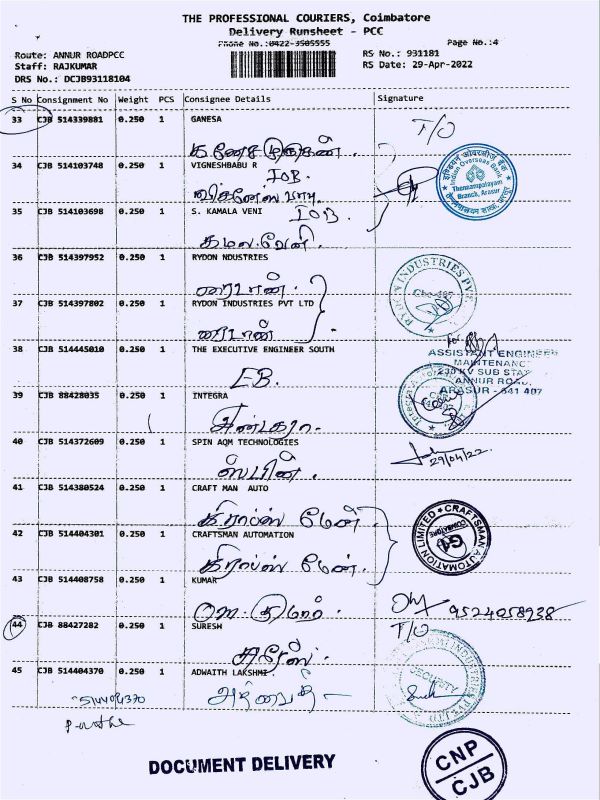 THE PROFESSIONAL COURIERS, Coimbatore
Delivery Runsheet - PCC
Phone No.:0422-3505555 Page No.:4
Route: ANNUR ROADPCC RS No.: 931181
Staff: RAJKUMAR RS Date: 29-Apr-2022
DRS No.: DCJB93118104
S No Consignment No Weight PCS Consignee Details Signature
33 CJB 514339881 0.250 1 GANESA T/O
34 CJB 514103748 0.250 1 VIGNESHBABU R
IOB.
விக்னேஸ் பாபு
35 CJB 514103698 0.250 1 S. KAMALA VENI IOB.
கமலவேனி.
Indian Overseas Bank
Thennampalayam
Branch, Arasur
36 CJB 514397952 0.250 1 RYDON NDUSTRIES
ரைடான்.
RYDON INDUSTRIES PVT
37 CJB 514397802 0.250 1 RYDON INDUSTRIES PVT LTD
ரைடான்
38 CJB 514445010 0.250 1 THE EXECUTIVE ENGINEER SOUTH
EB.
for
ASSISTANT ENGINEER
MAINTENANC
230 KV SUB STAT
ANNUR ROAD,
ARASUR - 641 407
39 CJB 88428035 0.250 1 INTEGRA
40 CJB 514372609 0.250 1 SPIN AQM TECHNOLOGIES
ஸ்பின்.
29/04/22
41 CJB 514380524 0.250 1 CRAFT MAN AUTO
கிராப்ஸ் மேன்.
42 CJB 514404301 0.250 1 CRAFTSMAN AUTOMATION
கிராப்ஸ் மேன்.
CRAFTSMAN AUTOMATION LIMITED
COIMBATORE
G4
43 CJB 514408758 0.250 1 KUMAR
குமார். 9524058938
44 CJB 88427282 0.250 1 SURESH T/O
சுரேஸ்.
45 CJB 514404370 0.250 1 ADWAITH LAKSHMI.
514404370 அத்வைத்
SECURITY
DOCUMENT DELIVERY
CNP
CJB